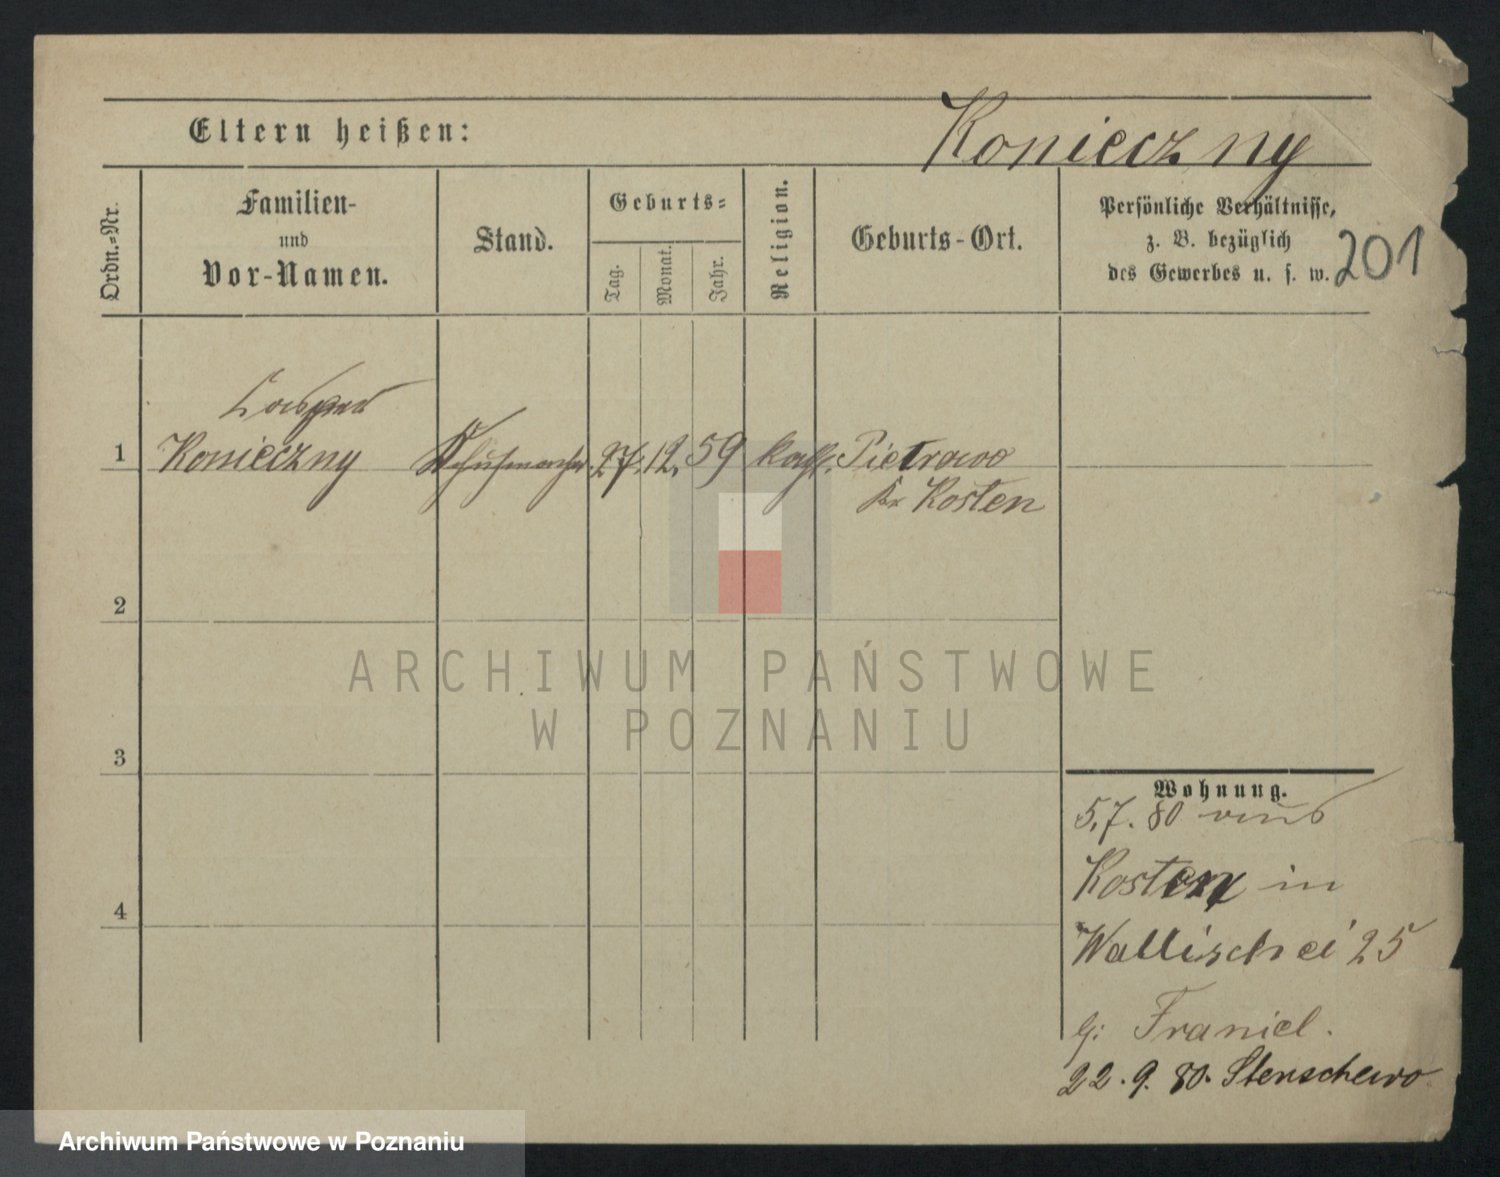 Konieczny
Eltern heißen:
Ordn.=Nr.
Familien-
und
Vor-Namen.
Stand.
Geburts=
Tag.
Monat.
Jahr.
Religion.
Geburts-Ort.
Persönliche Verhältnisse,
z. B. bezüglich
des Gewerbes u. s. w.
201
Casper
1 Konieczny Schuhmacher 27. 12. 59 kath. Pietrowo
Kr Kosten
2
3
4
Wohnung.
5.7. 80 aus
Kosten in
Wallischei 25
b: Franiel.
22. 9. 80. Stenschewo
ARCHIWUM PAŃSTWOWE
W POZNANIU
Archiwum Państwowe w Poznaniu